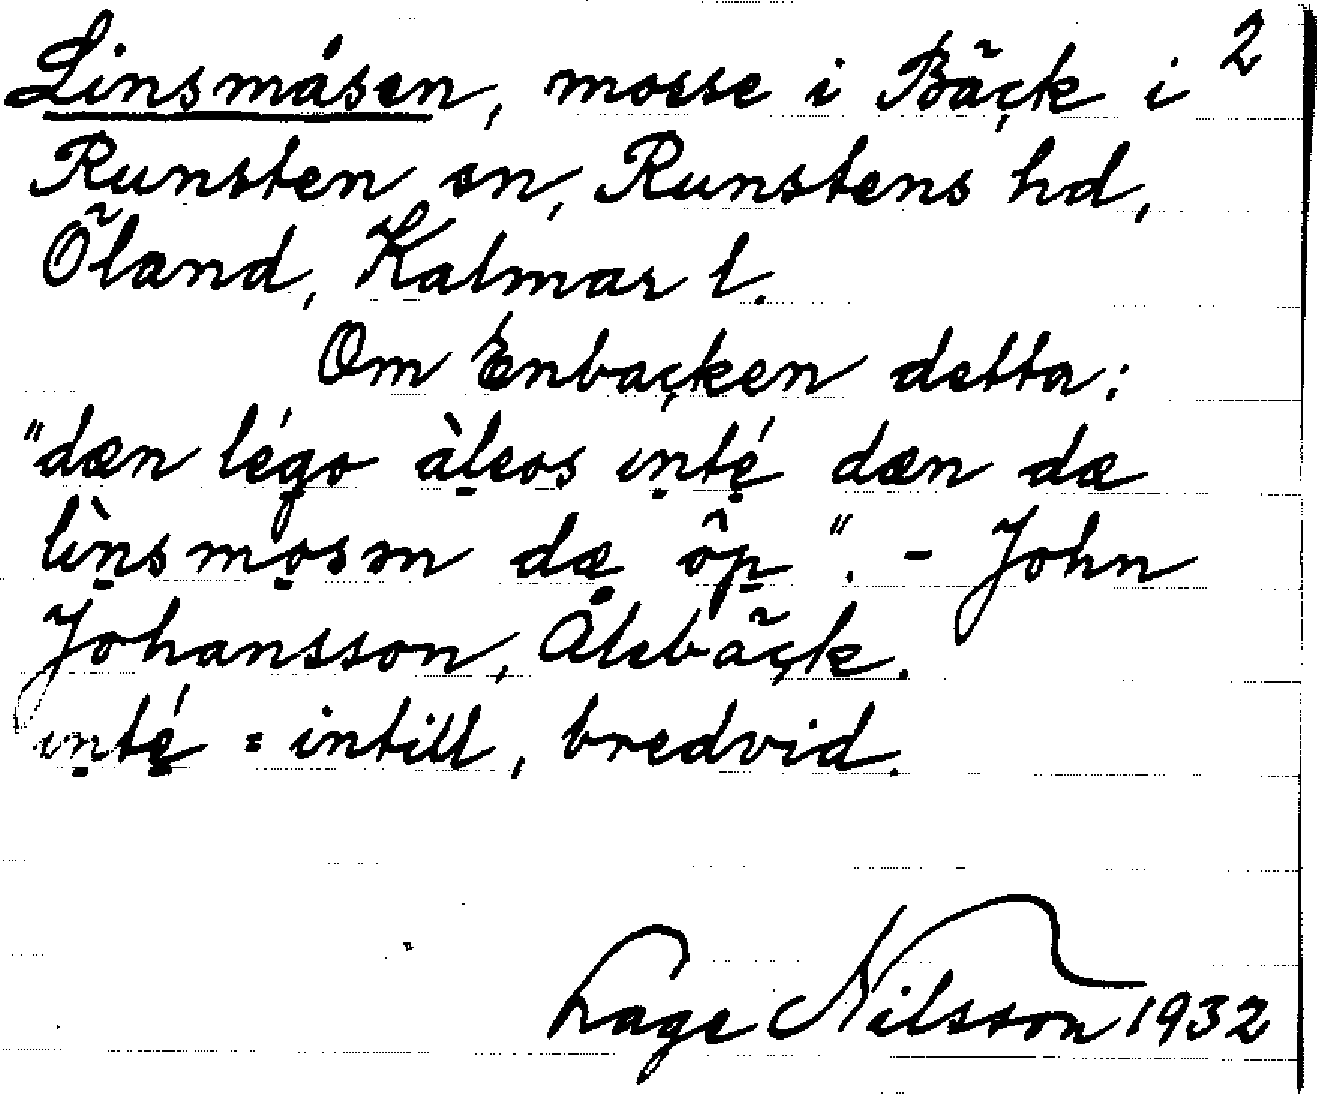 Linsmåsen, mosse i Bäck i 2
Runsten sn, Runstens hd,
Öland, Kalmar l.
Om Enbacken detta:
"dæn légo àleos ınté dæn dæ
lìnsmosm dæ ôp". - John
Johansson, Ålebäck.
ınté = intill, bredvid.
Lage Nilsson 1932